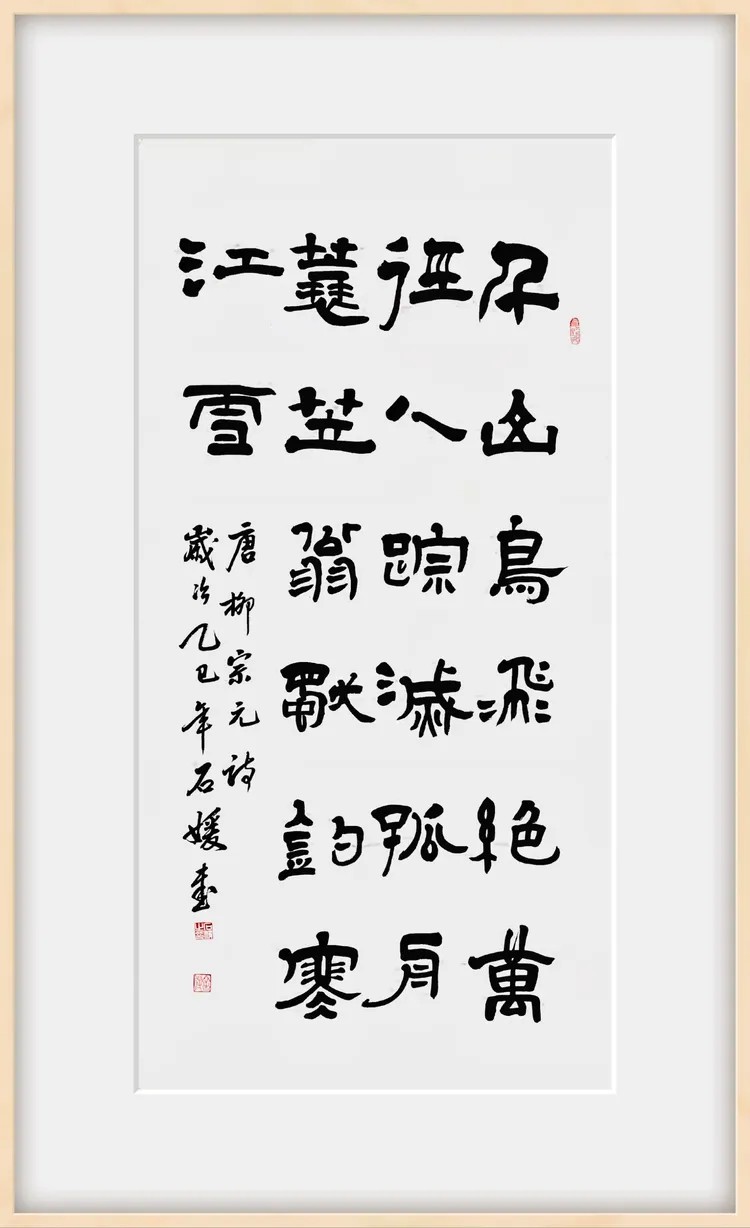 千山鳥飛絶萬
徑人踪滅孤舟
蓑笠翁獨釣寒
江雪
唐柳宗元詩
歲次乙巳年石媛書